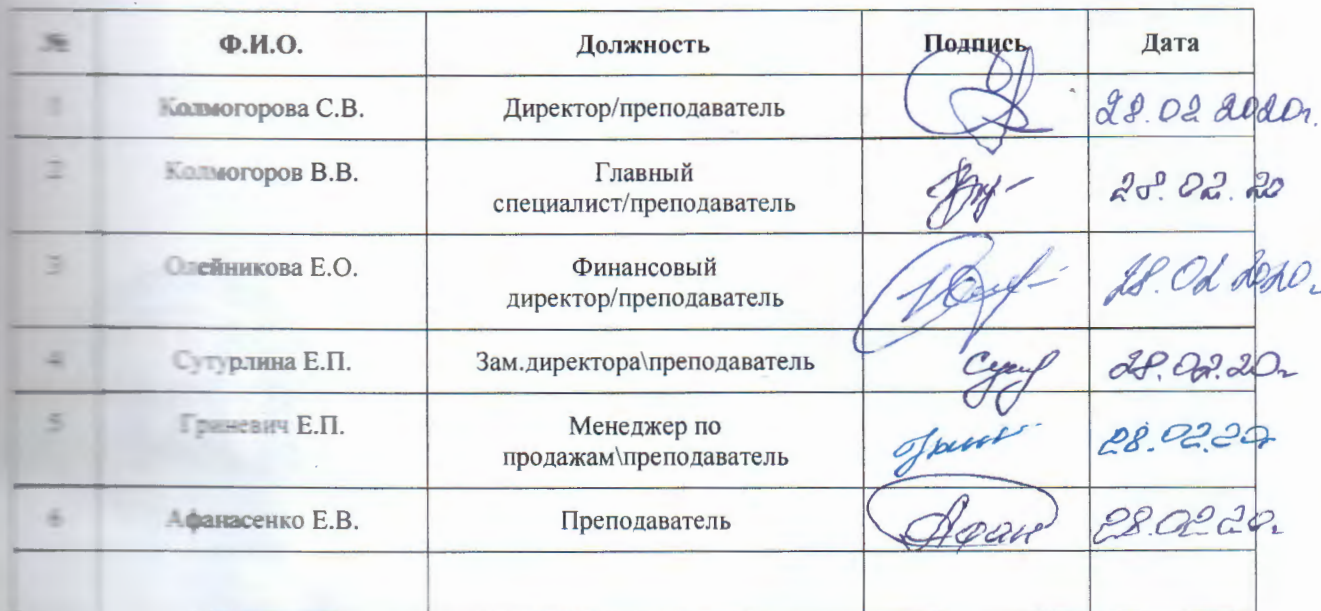 № Ф.И.О. Должность Подпись Дата
1 Колмогорова С.В. Директор/преподаватель 28.02.2020г.
2 Колмогоров В.В. Главный
специалист/преподаватель 28.02.20
3 Олейникова Е.О. Финансовый
директор/преподаватель 28.02 2020г
4 Сутурлина Е.П. Зам.директора\преподаватель 28.02.20г
5 Гриневич Е.П. Менеджер по
продажам\преподаватель 28.02.20г
6 Афанасенко Е.В. Преподаватель Афан 28.02.20г